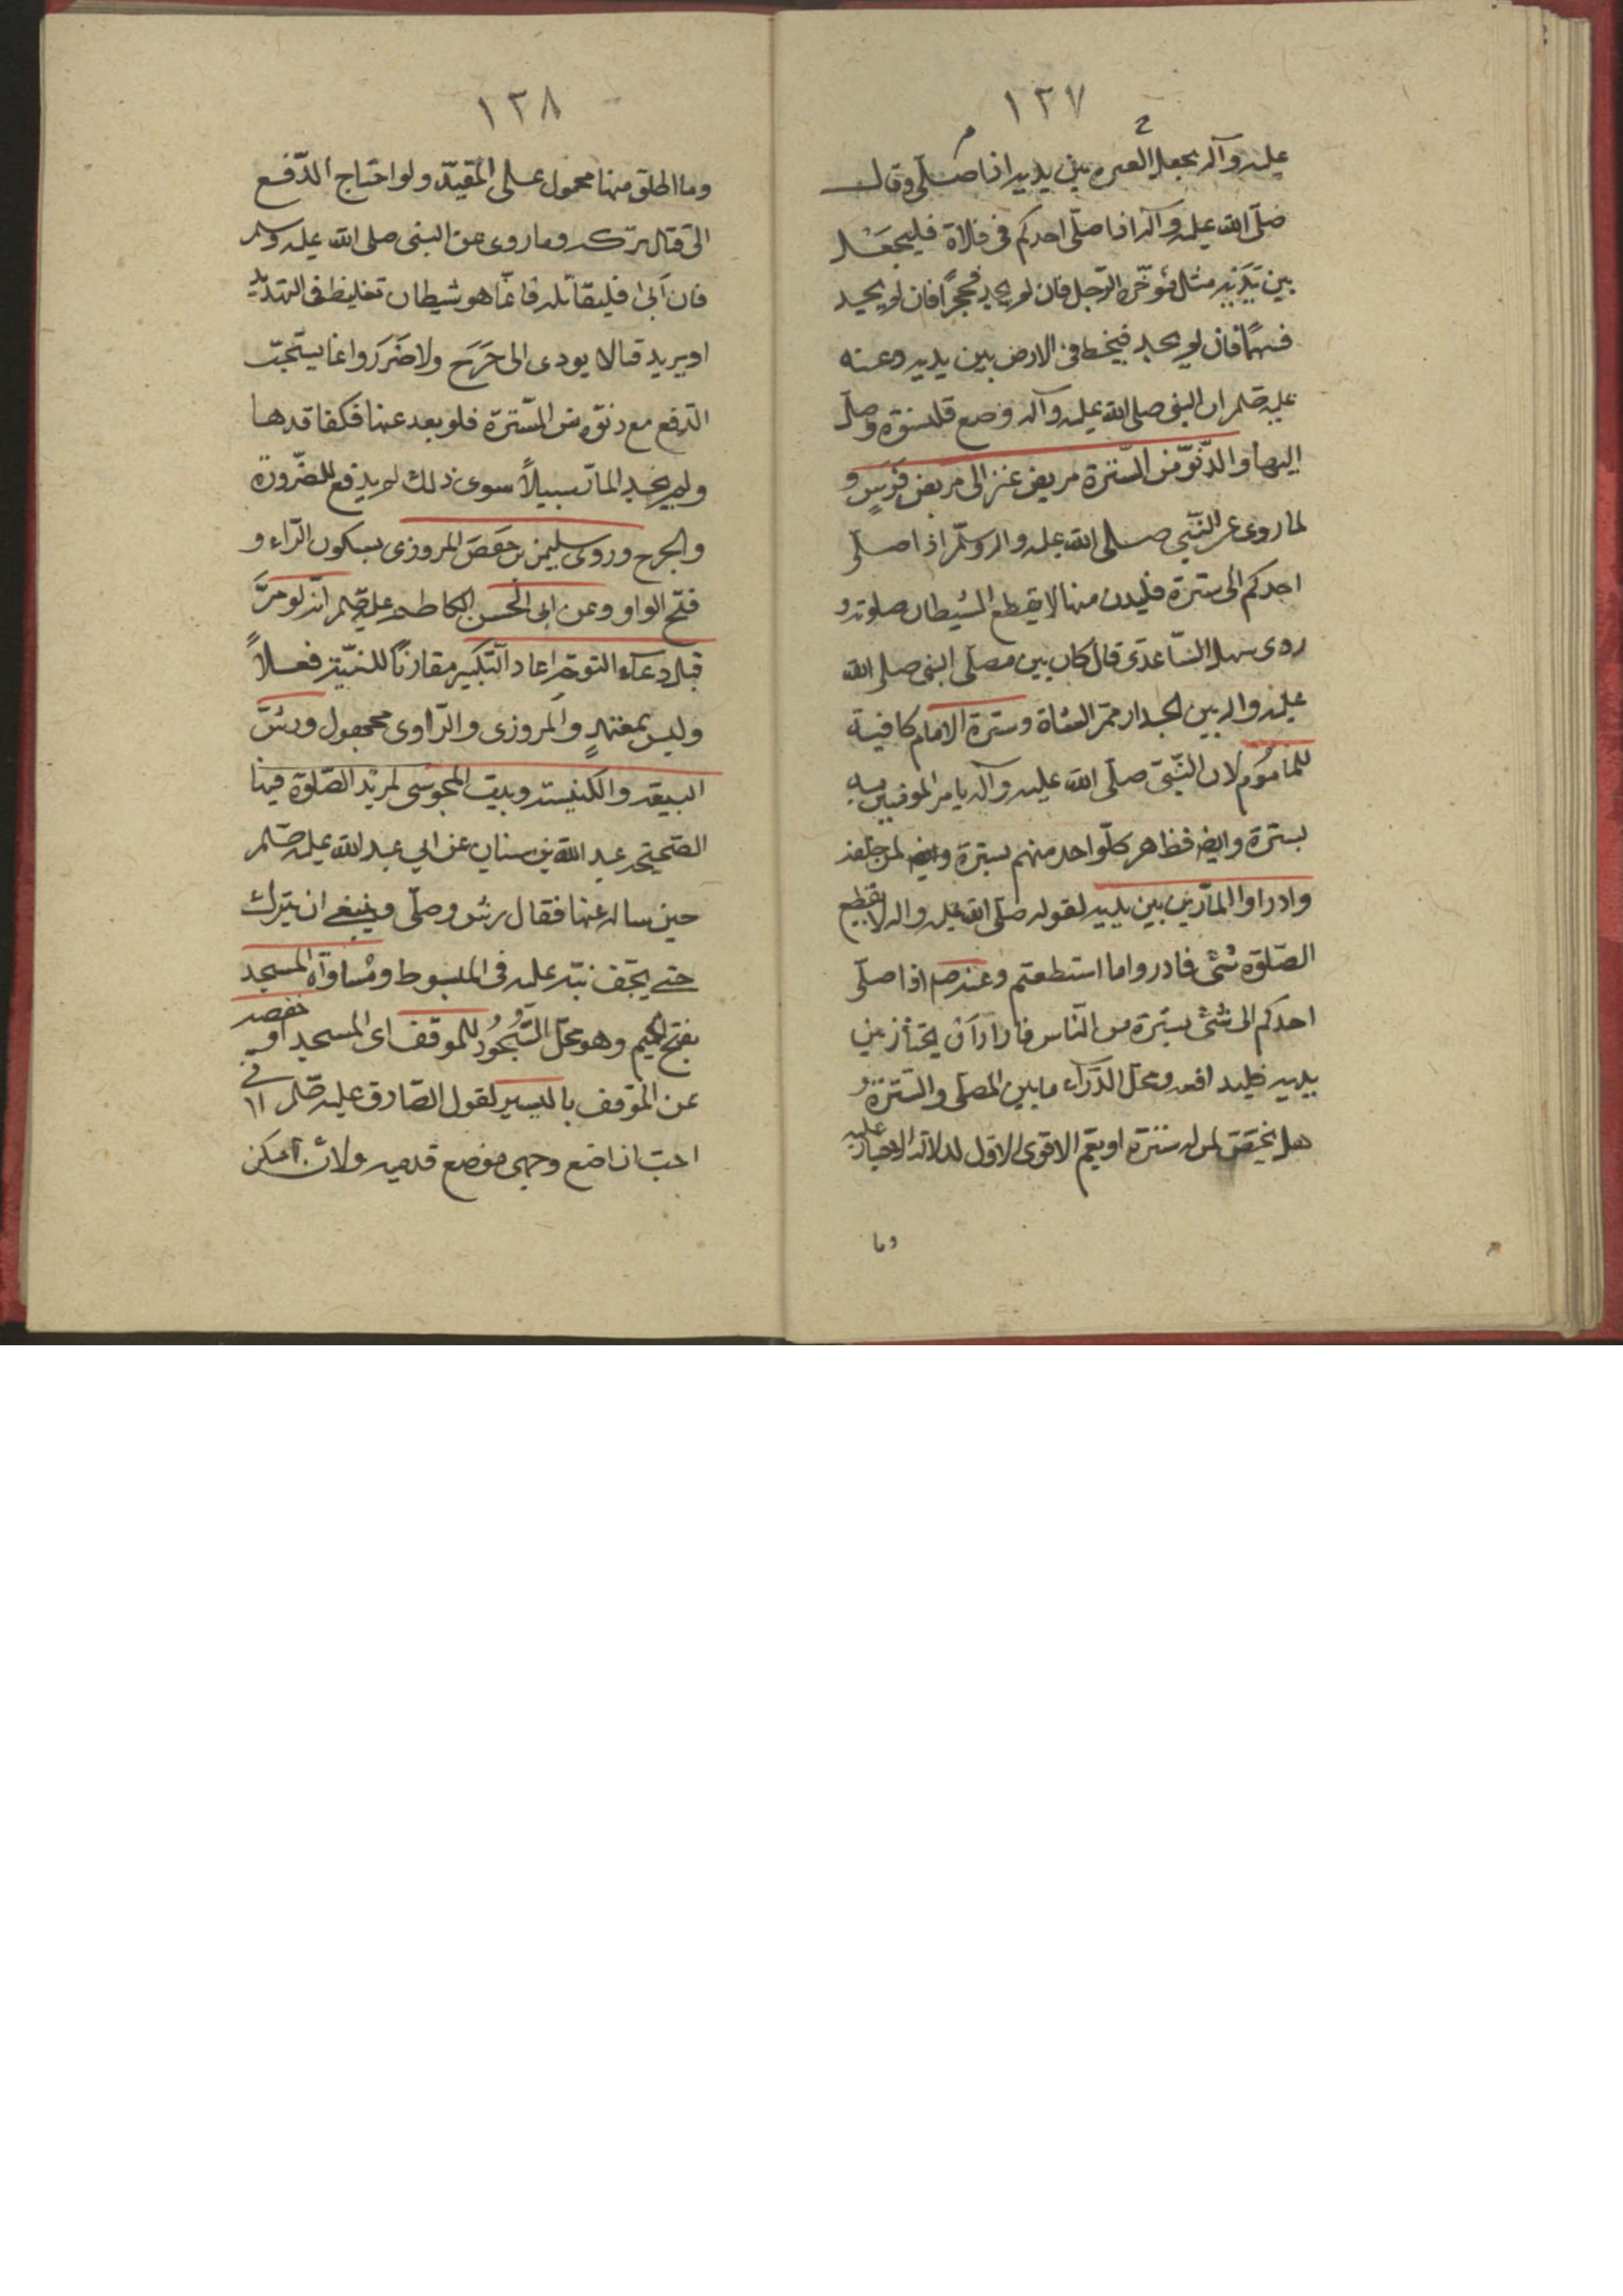 ١٢٧
عليه وآله يجعل العنزة بين يديه اذا صلّى وقال
صلّى الله عليه وآله اذا صلّى احدكم فى فلاة فليجعل
بين يديه مثل مؤخّرة الرّحل فان لم يجد فحجراً فان لم يجد
فسهماً فان لم يجد فيخط فى الارض بين يديه وعنه
عليه صلم ان النبى صلى الله عليه وآله وضع قلنسوة وصلّى
اليها والدّنوّ من السّترة مربض عنز الى مربض فرس و
لما روى عن النّبى صلى الله عليه واله وسلّم اذا صلّى
احدكم الى سترة فليدن منها لا يقطع الشيطان صلوته و
روى سهل السّاعدى قال كان بين مصلّى النبى صلى الله
عليه واله بين الجدار ممرّ الشاة وسترة الامام كافية
للمأموم لان النّبىّ صلّى الله عليه وآله يامر المؤتمين به
بسترة وايض فظاهر كلّ واحد منهم سترة وايض لمن خلفه
وادراوا المارّين بين يديه لقوله صلّى الله عليه واله لا يقطع
الصّلوة شئ فادروا ما استطعتم وعنه صم اذا صلّى
احدكم الى شئ يستره من النّاس فاراد أن يجتاز بين
يديه فليدافعه ومحلّ الدّرآء ما بين المصلى والسّترة و
هل يختصّ لمن له سترة او يعمّ الاقوى الاوّل لدلالة الاخبار عليه
وما
١٢٨
وما اطلق منها محمول على المقيّد ولو احتاج الدّفع
الى قتال تركه وما روى عن النبى صلى الله عليه وسلم
فان أبى فليقاتله فانّما هو شيطان تغليظ فى التهديد
او يريد قتالا لا يودى الى حرج ولا ضرر وانما يستحبّ
الدّفع مع دنوّه من السّترة فلو بعد عنها فكفاقدها
ولو لم يجد المارّ سبيلاً سوى ذلك لم يدفع للضّرورة
والحرج وروى سليمن بن حفص المروزى بسكون الرّاء و
فتح الواو وعن ابى الحسن الكاظم عليه صلم انه لو مرّ
قبل دعآء التوجّه اعاد التكبير مقارناً للنّيّة فعلاً
وليس بمعتمدٍ والمروزى والرّاوى مجهول ورشّ
البيعة والكنيسة وبيت المجوسى لمريد الصّلوة فيها
الصّحيحة عبد الله بن سنان عن ابي عبد الله عليه صلم
حين ساله عنها فقال رش وصلّى وينبغى ان يترك
حتى يجف نبّه عليه فى المبسوط ومساوآة المسجد
بفتح الجيم وهو محلّ السّجود للموقف اى المسجد او خفضه
عن الموقف باليسير لقول الصّادق عليه صلم انى
احبّ ان اضع وجهى موضع قدميه ولان امكن